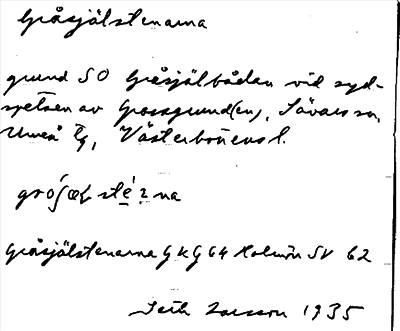 Gråsjälstenarna
grund SO Gråsjälbådan vid syd-
spetsen av Grossgrund(en), Sävars sn,
Umeå tg, Västerbottens l.
Gråsjälstenarna GkG64 Holmön SV 62
Seth Larsson 1935